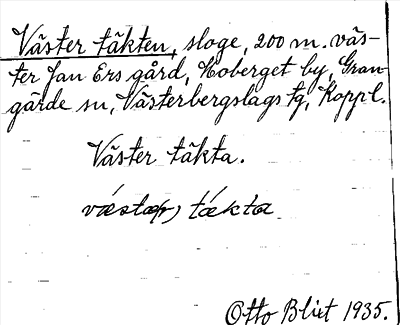 Väster täkten, sloge, 200 m. väs-
ter Jan Ers gård, Hoberget by, Gran-
gärde sn, Västerbergslags tg, Koppl.
Väster täkta.
västa(r) täkta
Otto Blixt 1935.